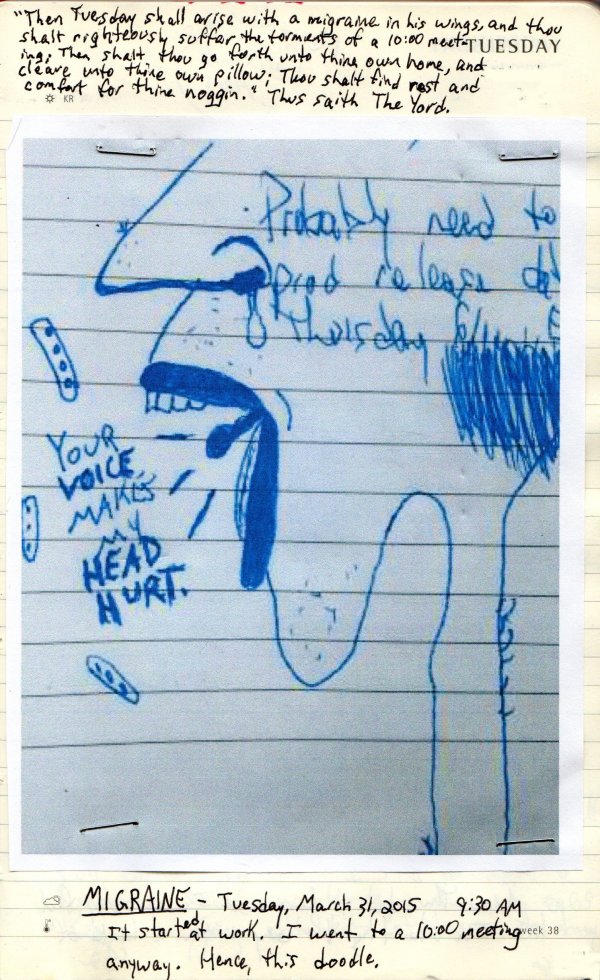 "Then Tuesday shall arise with a migraine in his wings, and thou
shalt righteously suffer the torments of a 10:00 meet-
TUESDAY
ing; Then shalt thou go forth unto thine own home, and
cleave unto thine own pillow; Thou shalt find rest and
comfort for thine noggin." Thus saith The Yord.
KR
Probably need to
prod release
Thursday
YOUR
VOICE
MAKES
MY
HEAD
HURT.
MIGRAINE - Tuesday, March 31, 2015 9:30 AM
It started at work. I went to a 10:00 meeting
week 38
anyway. Hence, this doodle.